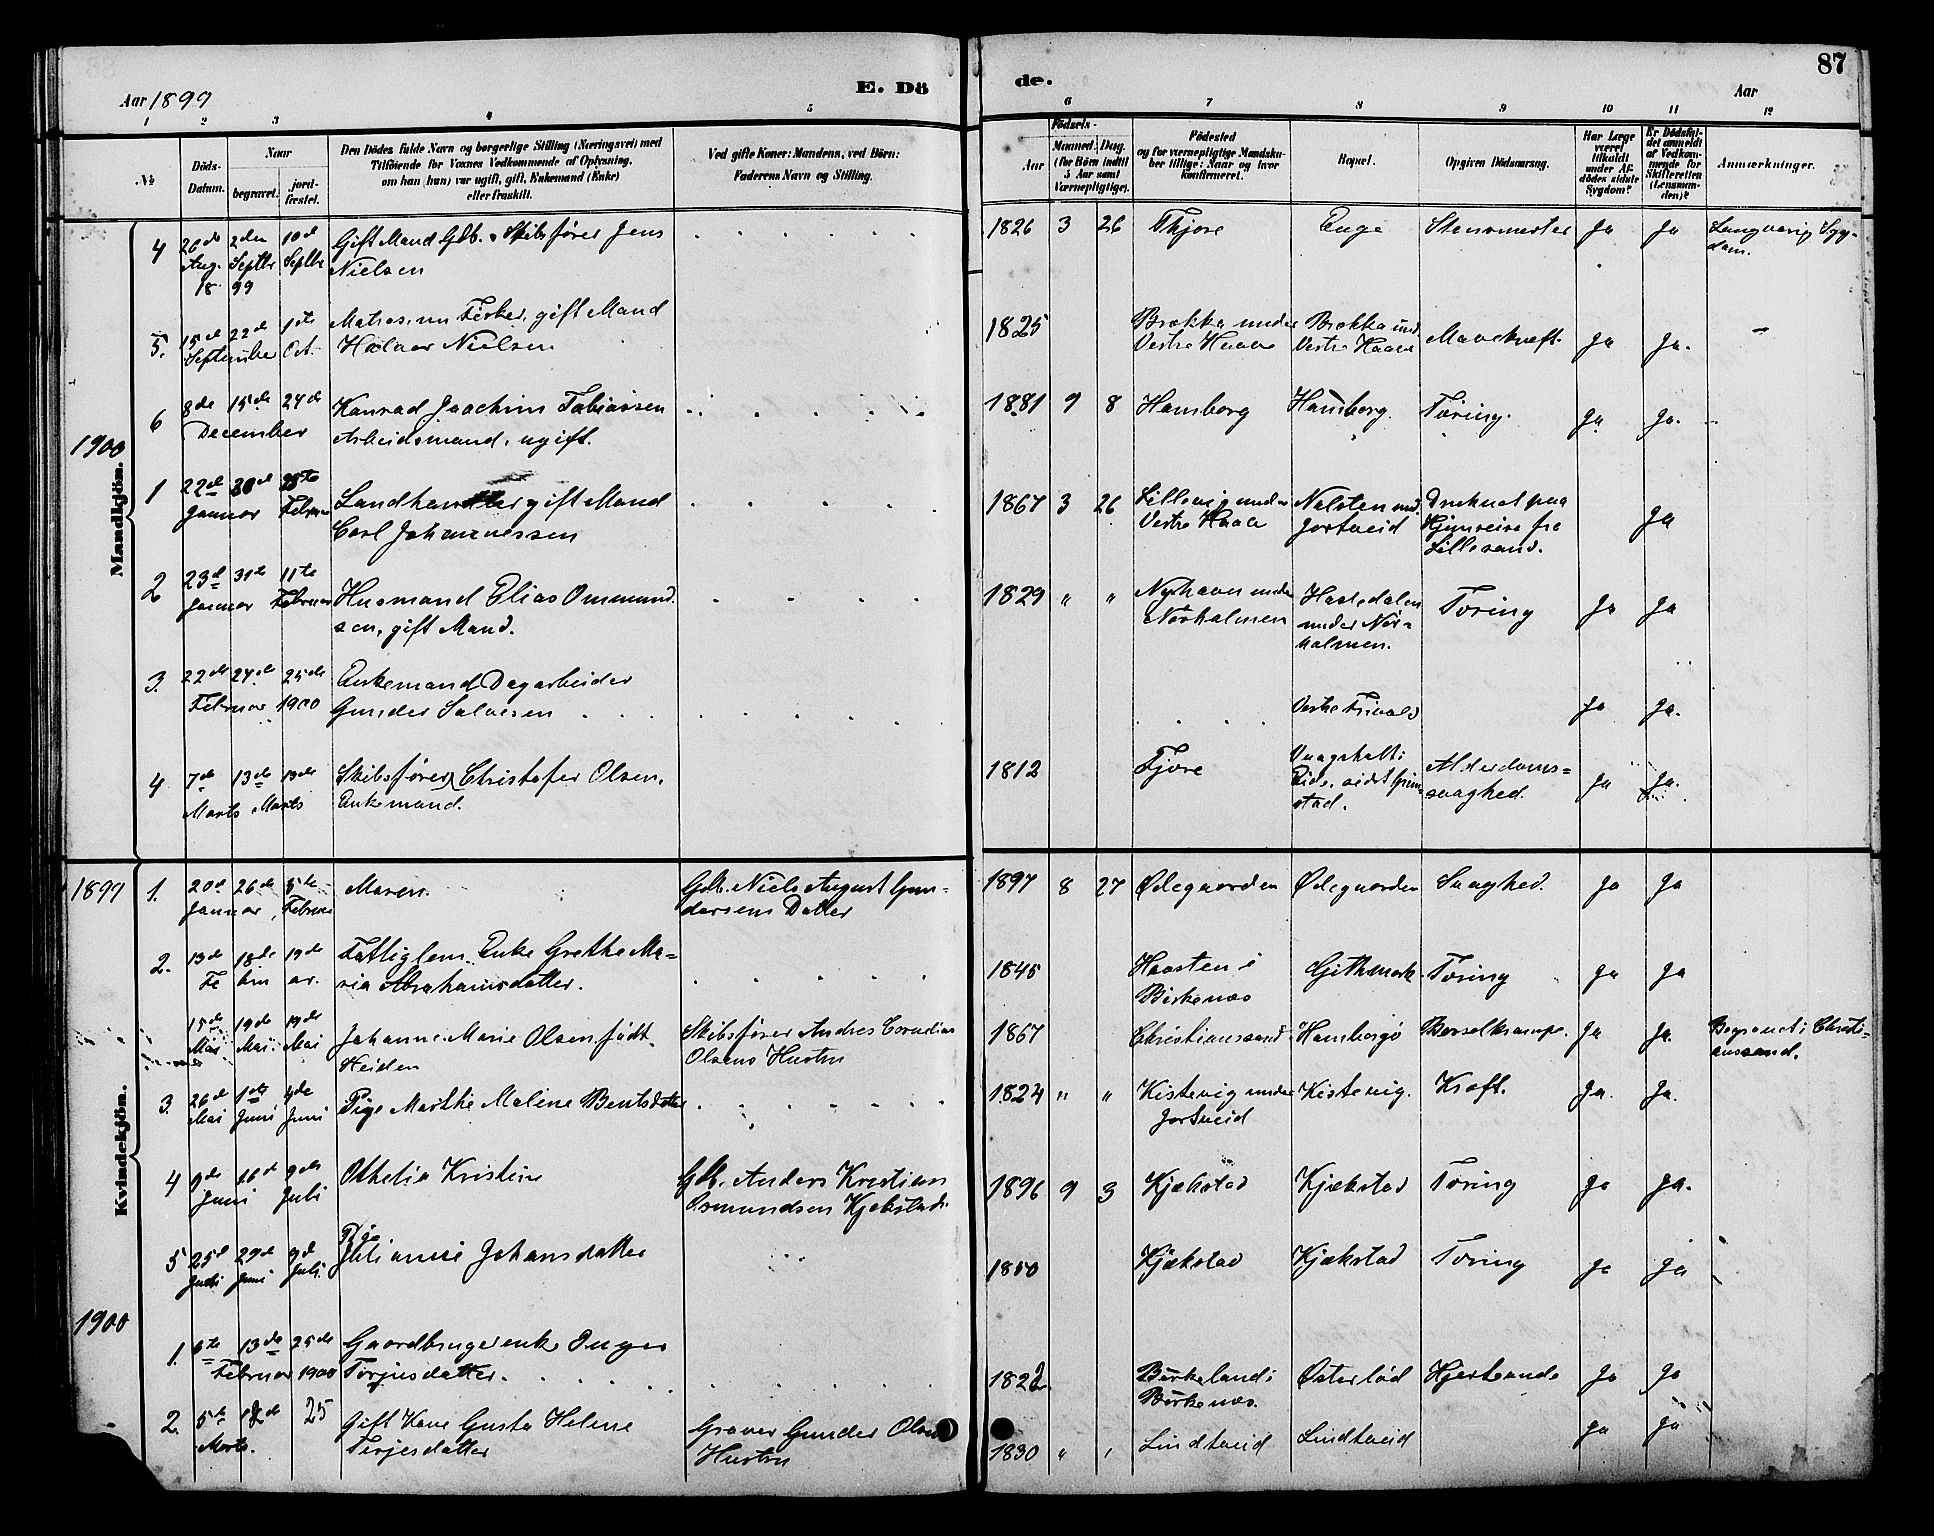 87
Aar 1899
E. Dö
de.
Aar
1 2 3 4 5
6 7 8 9 10 11 12
№
Döds-
Datum.
Naar
begravet.
jord-
fæstet.
Den Dödes fulde Navn og borgerlige Stilling (Næringsvei) med
Tilföiende for Voxnes Vedkommende af Oplysning,
om han (hun) var ugift, gift, Enkemand (Enke)
eller fraskilt.
Ved gifte Koner: Mandens, ved Börn:
Faderens Navn og Stilling.
Födsels-
Aar
Maaned. Dag.
(for Börn indtil
5 Aar samt
Værnepligtige).
Födested
og for værnepligtige Mandsku-
ber tillige: Naar og hvor
konfirmeret.
Bopæl.
Opgiven Dödsaarsag.
Har Læge
været
tilkaldt
under Af-
dödes sidste
Sygdom?
Er Dödsfal-
det anmeldt
af Vedkom-
mende for
Skifteretten
(Lensman-
den)?
Anmærkninger.
Mandkjön.
4 26de Aug. 2den Septbr 10de Septbr 18 99
Gift Mand Gdb. Skibsfører Jens
Nielsen
1826 3 26 Ja Ja Langvarig Syg-
dom.
5. 15de 22de September 1ste Oct.
Fisker, gift Mand
Halvor Nielsen
1825 Brækka under
Vestre Haave
Brækka und.
Vestre Haave
Mavekræft. Ja Ja.
6 8de 15de December 24de
Konrad Joachim Tobiassen
Arbeidsmand, ugift.
1881 9 8 Homborg Homborg. Tæring. Ja Ja.
1900
1 22de Januar 30de Februar
Landhandler gift Mand
Carl Johannessen
1867 3 26 Lillevig under
Vestre Haave
under
Jortveid
Druknet paa
Hjemreise fra
Lillesand.
Ja
2 23de 31te Januar 11te Februar
Husmand Elias Ommund
sen, gift Mand.
1829 " " Nyhavn under
Nørholmen
under Nør-
holmen.
Tæring Ja Ja
3. 22de 24de 25de Februar 1900
Enkemand Dagarbeider
Gunder Salvesen
Vestre Ja Ja.
4 7de Marts 13de Marts 19de
Skibsfører Christofer Olsen.
Enkemand.
1812 Fjære
Eide, sidst Grim
stad.
Alderdoms=
svaghed. Ja Ja.
Kvindekjön.
1899
1. 20de Januar 26de 5te Februar
Maren.
Gdb. Niels August Gun-
dersens Datter
1897 8 27 Ødegaarden Ødegaarden Svaghed. Ja Ja
2. 13de 18de 19de Februar.
Fattiglem. Enke Grethe Ma=
ria Abrahamsdatter.
1845 Haasten i
Birkenæs
Githmark Tæring Ja Ja
15de Mai 19de Mai 19de Mai
Johanne Marie Olsen født
Heiden
Skibsfører Andres Cornelius
Olsens Hustru
1867 Christianssand Homborgø Barselkrampe. Ja Ja. Begravet i Christi-
anssand.
3. 26de Mai 1ste Juni 4de Juni
Pige Marthe Malene Bentsdatter
1824 " " Kistevig under
Jortveid
Kistevig. Kræft. Ja. Ja.
4 9de 16de Juni 9de Juli
Othelia Kristine
Gdb. Anders Kristian
Osmundsen Kjækstad.
1896 9 3 Kjækstad Kjækstad Tæring Ja Ja.
5 25de Juni 29de Juni 9de Juli
Pige
Julianne Johansdatter
1850 Kjækstad Kjækstad Tæring Ja Ja
1900
1. 6te 13de Februar 25de 1900
Gaardbrugerenke Inger
Terjesdatter.
1822 Birkeland i
Birkenæs.
Østerlød Hjerteonde Ja Ja
2. 5te Marts. 12de 25
Gift Kone Gusta Helene
Terjesdatter
Graver Gunder Olsens
Hustru
1830 " " Lindtveid Lindtveid Ja Ja